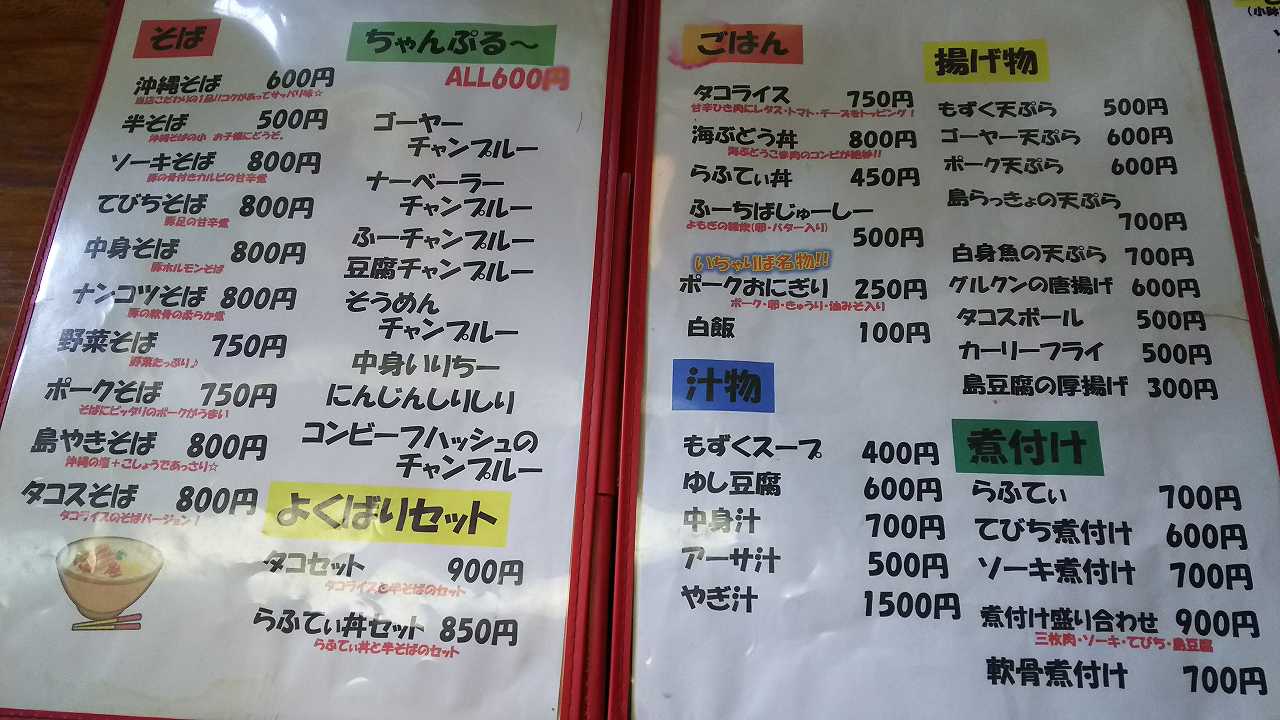 そば
沖縄そば 600円
当店こだわりの1品!!コクがあってサッパリ味☆
半そば 500円
沖縄そばの小 お子様にどうぞ。
ソーキそば 800円
豚の骨付きカルビの甘辛煮
てびちそば 800円
豚足の甘辛煮
中身そば 800円
豚ホルモンそば
ナンコツそば 800円
豚の軟骨の柔らか煮
野菜そば 750円
野菜たっぷり♪
ポークそば 750円
そばにピッタリのポークがうまい
島やきそば 800円
沖縄の塩+こしょうであっさり☆
タコスそば 800円
タコライスのそばバージョン!
ちゃんぷる〜
ALL600円
ゴーヤー
チャンプルー
ナーベーラー
チャンプルー
ふーチャンプルー
豆腐チャンプルー
そうめん
チャンプルー
中身いりちー
にんじんしりしり
コンビーフハッシュの
チャンプルー
よくばりセット
タコセット 900円
タコライスと半そばのセット
らふてぃ丼セット 850円
らふてぃ丼と半そばのセット
ごはん
タコライス 750円
甘辛ひき肉にレタス・トマト・チーズをトッピング!
海ぶどう丼 800円
海ぶどうご飯肉のコンビが絶妙!!
らふてぃ丼 450円
ふーちばじゅーしー
よもぎの雑炊(卵・バター入り)
500円
いちゃりば名物!!
ポークおにぎり 250円
ポーク・卵・きゅうり・油みそ入り
白飯 100円
汁物
もずくスープ 400円
ゆし豆腐 600円
中身汁 700円
アーサ汁 500円
やぎ汁 1500円
揚げ物
もずく天ぷら 500円
ゴーヤー天ぷら 600円
ポーク天ぷら 600円
島らっきょの天ぷら
700円
白身魚の天ぷら 700円
グルクンの唐揚げ 600円
タコスボール 500円
カーリーフライ 500円
島豆腐の厚揚げ 300円
煮付け
らふてぃ 700円
てびち煮付け 600円
ソーキ煮付け 700円
煮付け盛り合わせ 900円
三枚肉・ソーキ・てびち・島豆腐
軟骨煮付け 700円